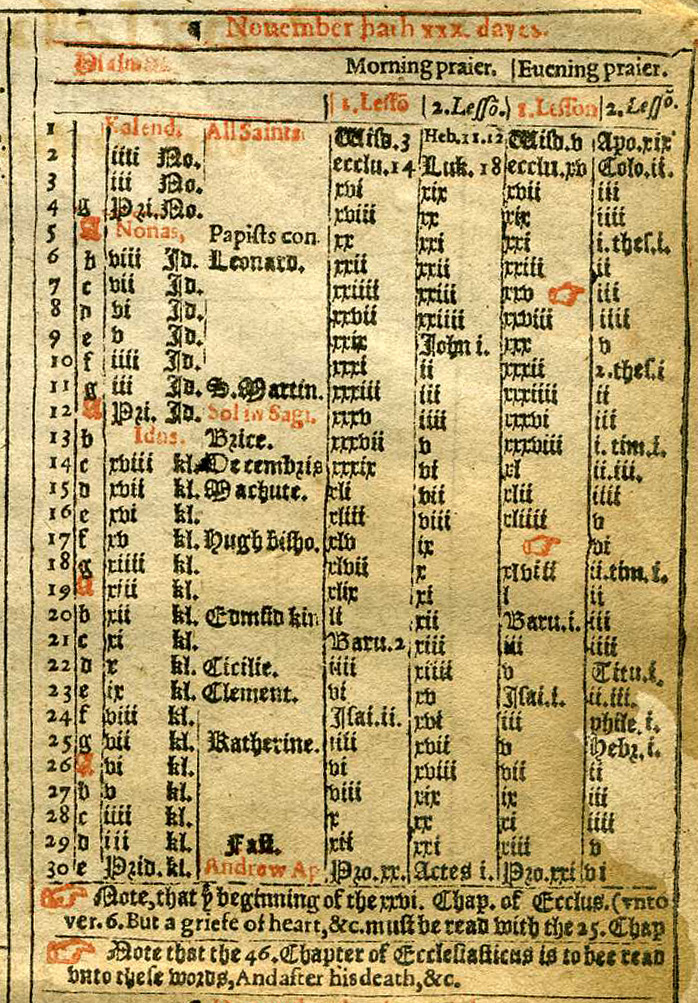 ¶ Nouember hath xxx. dayes.
Psalmes. Morning praier. | Euening praier.
1. Lessõ 2. Lessõ. 1. Lesson 2. Lessõ.
1 Kalend. All Saints Wisd. 3 Heb. 11. 12 Wisd. v Apo. xix
2 iiii No. ecclu. 14 Luk. 18 ecclu. xv Colo. ii.
3 iii No. xvi xix xvii iii
4 g Pri. No. xviii xx xix iiii
5 A Nonas, Papists con. xx xxi xxi i. thes. i.
6 b viii Id. Leonard. xxii xxii xxiii ii
7 c vii Id. xxiiii xxiii xxv ☞ iii
8 d vi Id. xxvii xxiiii xxviii iiii
9 e v Id. xxix John i. xxx v
10 f iiii Id. xxxi ii xxxii 2. thes. i
11 g iii Id. S. Martin. xxxiii iii xxxiiii ii
12 A Pri. Id. Sol in Sagi. xxxv iiii xxxvi iii
13 b Idus. Brice. xxxvii v xxxviii i. tim. i.
14 c xviii kl. Decembris xxxix vi xl ii. iii.
15 d xvii kl. Machute. xli vii xlii iiii
16 e xvi kl. xliii viii xliiii v
17 f xv kl. Hugh bisho. xlv ix ☞ vi
18 g xiiii kl. xlvii x xlviii ii. tim. i.
19 A xiii kl. xlix xi l ii
20 b xii kl. Edmũd kin li xii Baru. i. iii
21 c xi kl. Baru. 2 xiii iii iiii
22 d x kl. Cicilie. iiii xiiii v Titu. i.
23 e ix kl. Clement. vi xv Isai. i. ii. iii.
24 f viii kl. Isai. ii. xvi iii phile. i.
25 g vii kl. Katherine. iiii xvii v Hebr. i.
26 A vi kl. vi xviii vii ii
27 b v kl. viii xix ix iii
28 c iiii kl. x xx xi iiii
29 d iii kl. Fast. xii xxi xiii v
30 e Prid. kl. Andrew Ap Pro. xx. Actes i. Pro. xxi vi
☞ Note, that yͤ beginning of the xxvi. Chap. of Ecclus. (vnto
ver. 6. But a griefe of heart, &c. must be read with the 25. Chap
☞ Note that the 46. Chapter of Ecclesiasticus is to bee read
vnto these words, And after his death, &c.